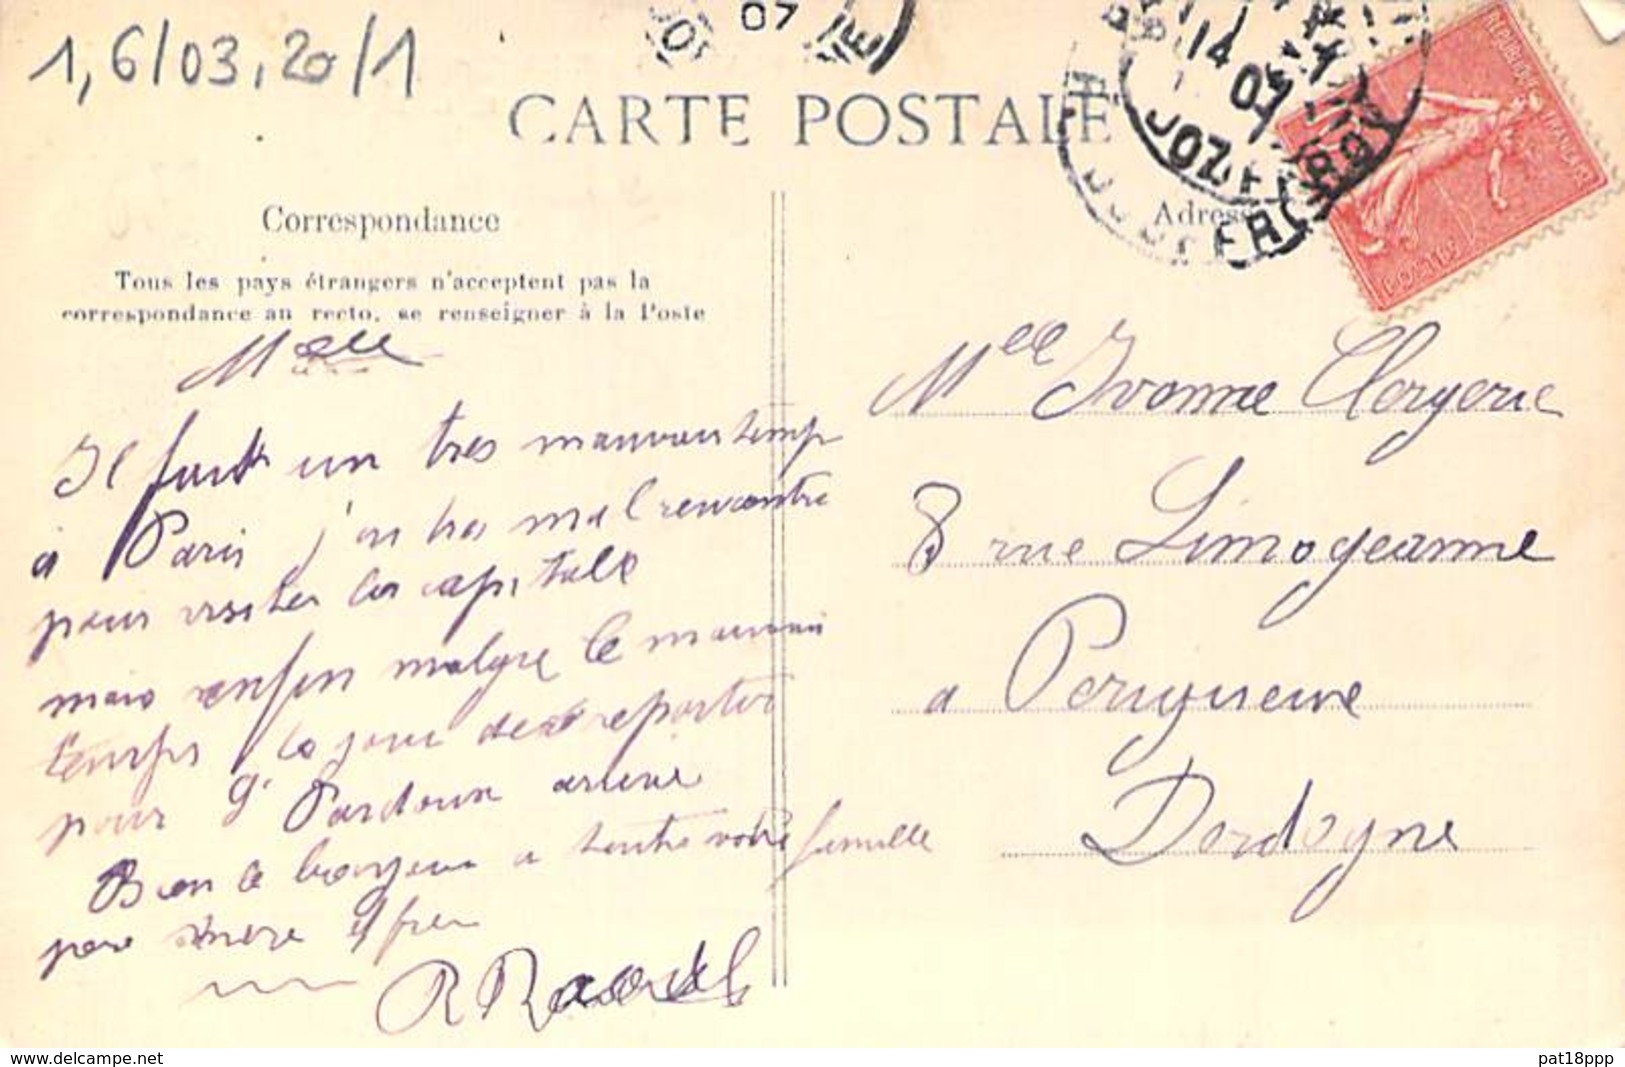 1,6/03.20/1
07
14
07
CARTE POSTALE
Correspondance
Adresse
Tous les pays étrangers n'acceptent pas la
correspondance au recto, se renseigner à la Poste
REPUBLIQUE FRANÇAISE
POSTES
Melle
Il fait un tres mauvais temp
a Paris j'ai tres mal rencontre
pour visiter la capitale
mais enfin malgre le mauvais
temps
pour St Pardoux arrive
Bien le bonjour a toute votre famille
pere mere et frere
R Raoul
Melle Yvonne Clergerie
8 rue Limogeanne
a Perigueux
Dordogne
www.delcampe.net
pat18ppp